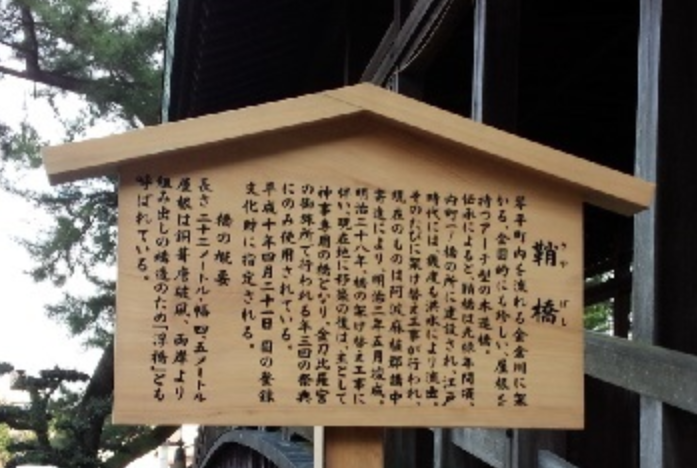 鞘橋
さやばし
琴平町内を流れる金倉川に架
かる、全国的にも珍しい、屋根を
持つアーチ型の木造橋。
伝承によると、鞘橋は元禄年間頃、
内町一ノ橋の所に建設され、江戸
時代には幾度も洪水により流出。
そのたびに架け替え工事が行われ、
現在のものは阿波麻植郡橋中
寄進により、明治二年五月竣成。
明治三十八年、橋の架け替え工事に
伴い、現在地に移築の後は、主として
神事専用の橋となり、金刀比羅宮
の御旅所で行われる年三回の祭典
にのみ使用されている。
平成十年四月二十一日 国の登録
文化財に指定される。
橋の概要
長さ二十三メートル・幅四・五メートル
屋根は銅葺唐破風、両岸より
組み出しの構造のため「浮橋」とも
呼ばれている。